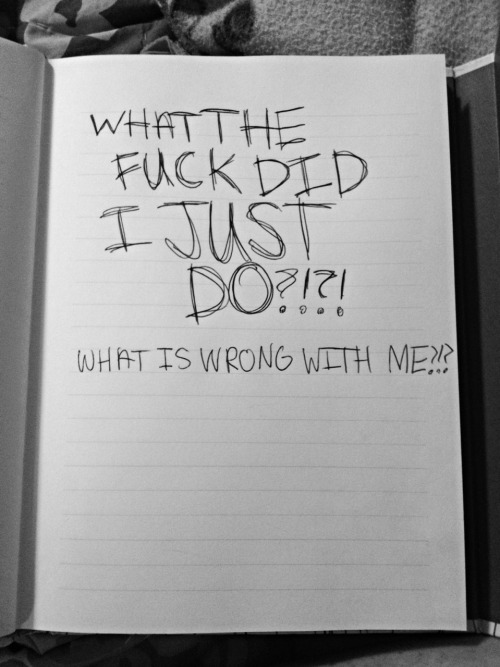 WHAT THE
FUCK DID
I JUST
DO?!?!
WHAT IS WRONG WITH ME?!?